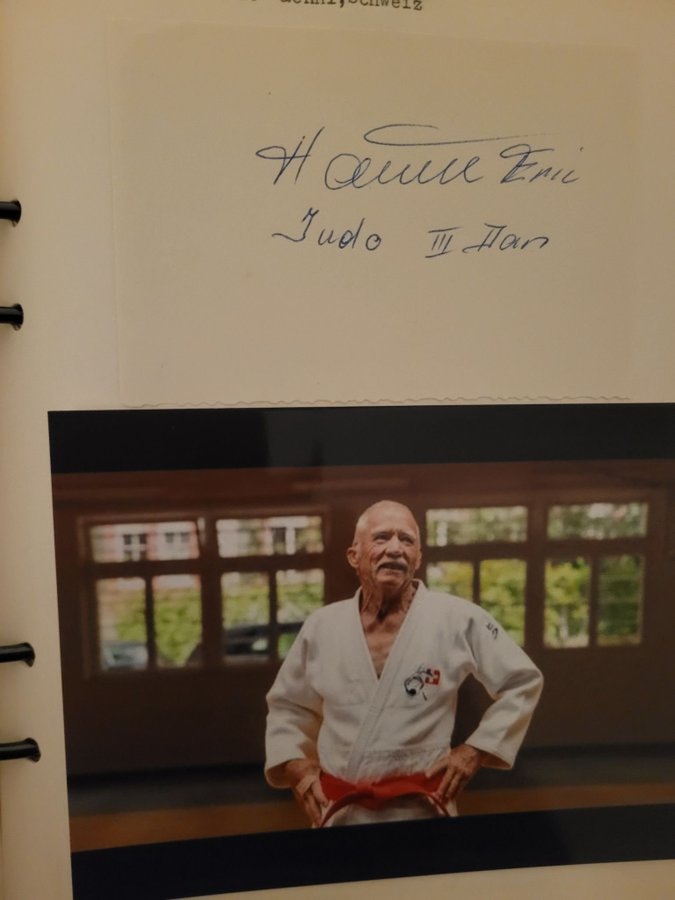 Haenni,Schweiz
Haenni Eric
Judo III Dan